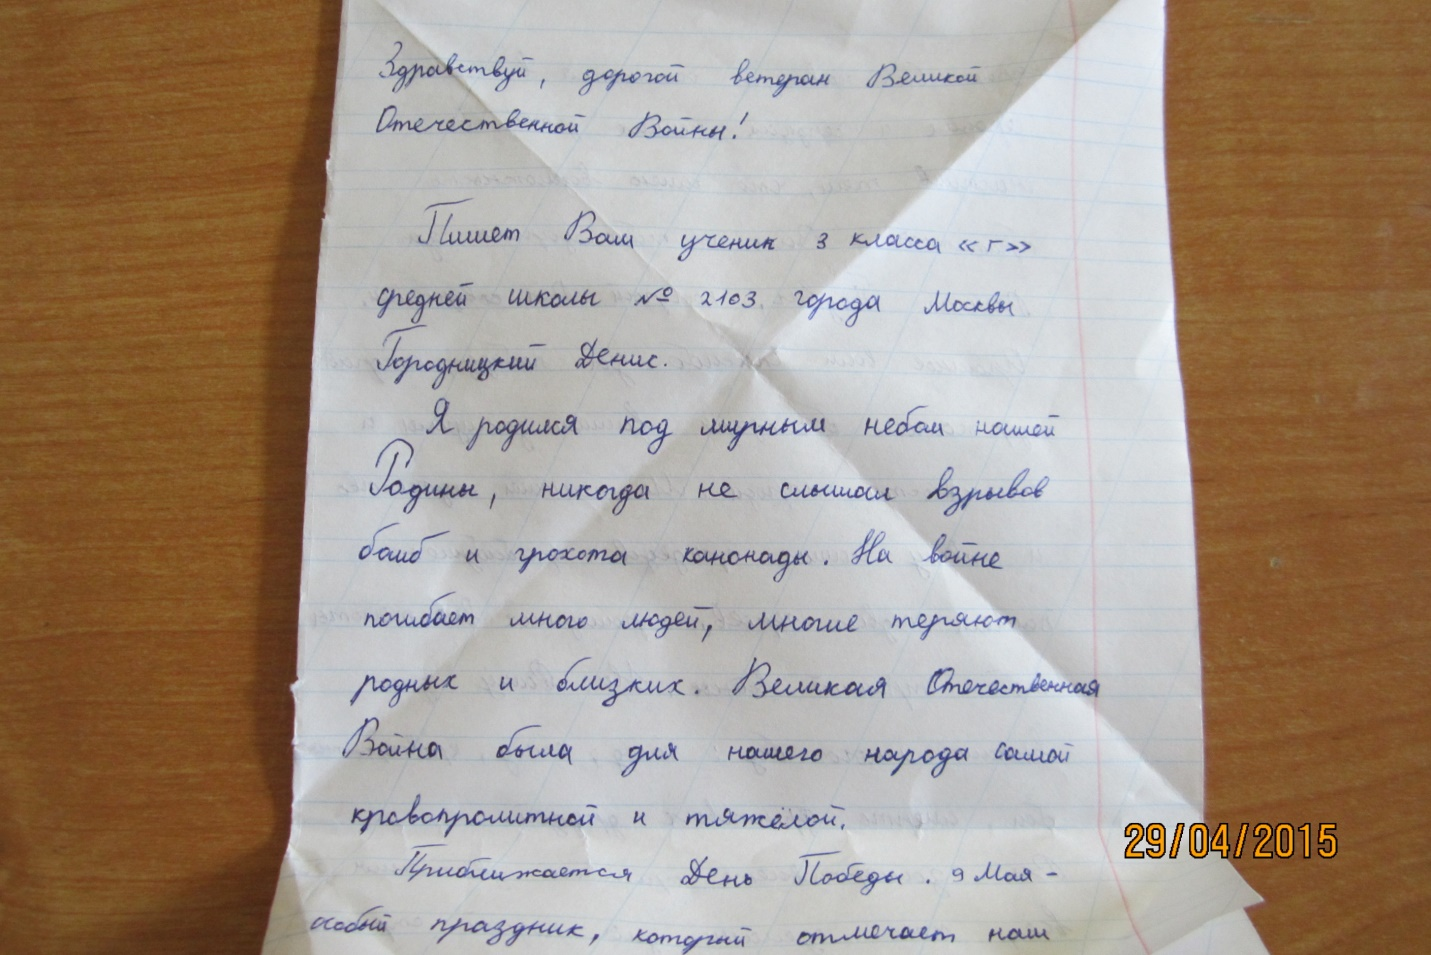 Здравствуй, дорогой ветеран Великой
Отечественной Войны!
Пишет Вам ученик 3 класса «Г»
средней школы № 2103, города Москвы
Городницкий Денис.
Я родился под мирным небом нашей
Родины, никогда не слышал взрывов
бомб и грохота канонады. На войне
погибает много людей, многие теряют
родных и близких. Великая Отечественная
Война была для нашего народа самой
кровопролитной и тяжёлой.
Приближается День Победы. 9 Мая -
особый праздник, который отмечает наш
29/04/2015